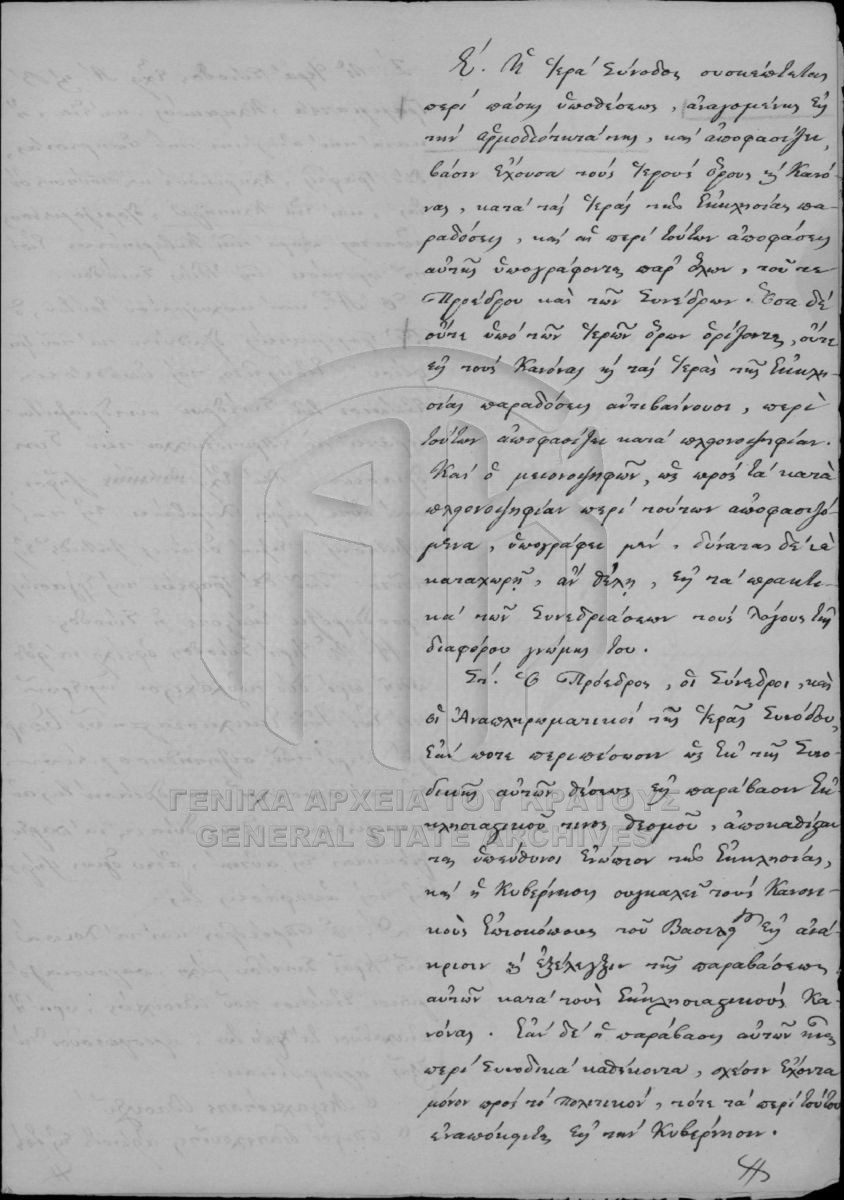 Ε΄. Ἡ Ἱερὰ Σύνοδος συσκέπτεται
περὶ πάσης ὑποθέσεως, ἀναγομένης εἰς
τὴν ἁρμοδιότητά της, καὶ ἀποφασίζει,
βάσιν ἔχουσα τοὺς Ἱεροὺς ὅρους κ̣ Κανό-
νας, κατὰ τὰς Ἱερὰς τῆς Ἐκκλησίας πα-
ραδόσεις, καὶ αἱ περὶ τούτων ἀποφάσεις
αὐτῆς ὑπογράφονται παρ' ὅλων, τοῦ τε
Προέδρου καὶ τῶν Συνέδρων. Ὅσα δὲ
οὔτε ὑπὸ τῶν Ἱερῶν ὅρων ὁρίζονται, οὔτε
εἰς τοὺς Κανόνας κ̣ τὰς Ἱερὰς τῆς Ἐκκλη-
σίας παραδόσεις ἀντιβαίνουσι, περὶ
τούτων ἀποφασίζει κατὰ πληονοψηφίαν.
Καὶ ὁ μειονοψηφῶν, ὡς πρὸς τὰ κατὰ
πληονοψηφίαν περὶ τούτων ἀποφασιζό-
μενα, ὑπογράφει μὲν, δύναται δὲ νὰ
καταχωρῇ, ἂν θέλῃ, εἰς τὰ πρακτι-
κὰ τῶν Συνεδριάσεων τοὺς λόγους τῆς
διαφόρου γνώμης του.
Ϛ΄. Ὁ Πρόεδρος, οἱ Σύνεδροι, καὶ
οἱ Ἀναπληρωματικοὶ τῆς Ἱερᾶς Συνόδου,
ἐάν ποτε περιπέσωσιν ὡς ἐκ τῆς Συνο-
δικῆς αὐτῶν θέσεως εἰς παράβασιν ἐκ-
κλησιαστικοῦ τινος θεσμοῦ, ἀποκαθίσταν-
ται ὑπεύθυνοι ἐνώπιον τῆς Ἐκκλησίας,
καὶ ἡ Κυβέρνησις συγκαλεῖ τοὺς Κανονι-
κοὺς Ἐπισκόπους τοῦ Βασιλείου εἰς ἀνά-
κρισιν κ̣ ἐξέλεγξιν τῆς παραβάσεως
αὐτῶν κατὰ τοὺς Ἐκκλησιαστικοὺς Κα-
νόνας. Ἐὰν δὲ ἡ παράβασις αὐτῶν ᾖναι
περὶ Συνοδικὰ καθήκοντα, σχέσιν ἔχοντα
μόνον πρὸς τὸ πολιτικὸν, τότε τὰ περὶ τούτου
ἐναπόκειται εἰς τὴν Κυβέρνησιν.
ΓΕΝΙΚΑ ΑΡΧΕΙΑ ΤΟΥ ΚΡΑΤΟΥΣ
GENERAL STATE ARCHIVES